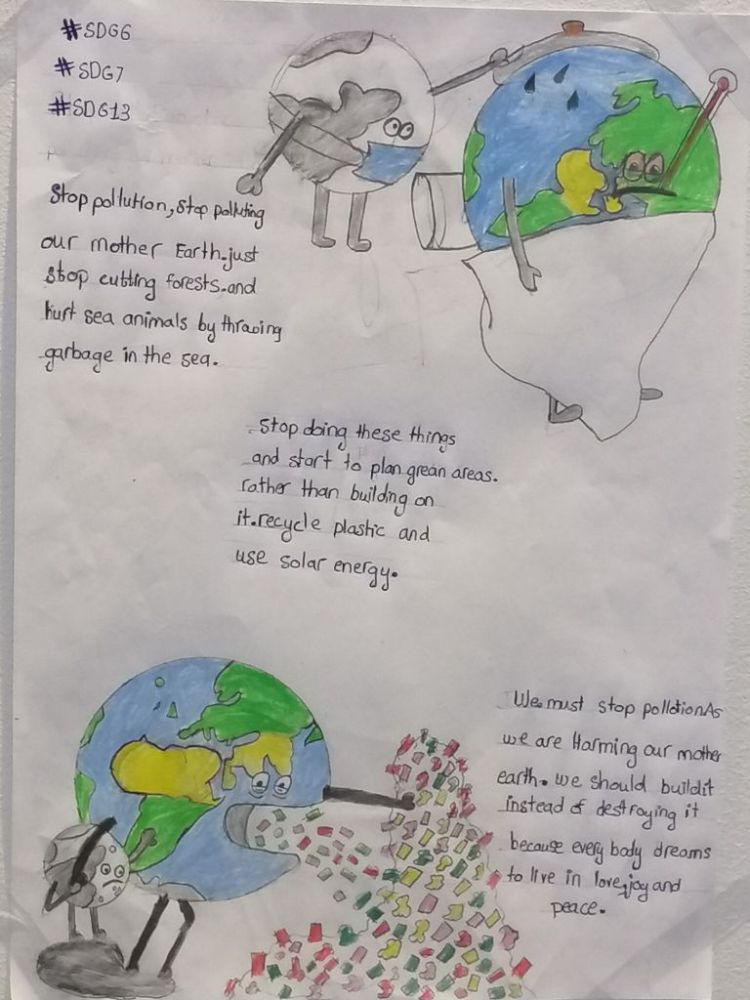 #SDG6
#SDG7
#SDG13
Stop pollution, stop polluting
our mother Earth.just
stop cutting forests.and
hurt sea animals by throwing
garbage in the sea.
Stop doing these things
and start to plan grean areas.
rather than building on
it.recycle plastic and
use solar energy.
We must stop pollotionAs
we are Harming our mother
earth. we should buildit
instead of destroying it
because every body dreams
to live in love,joy and
peace.